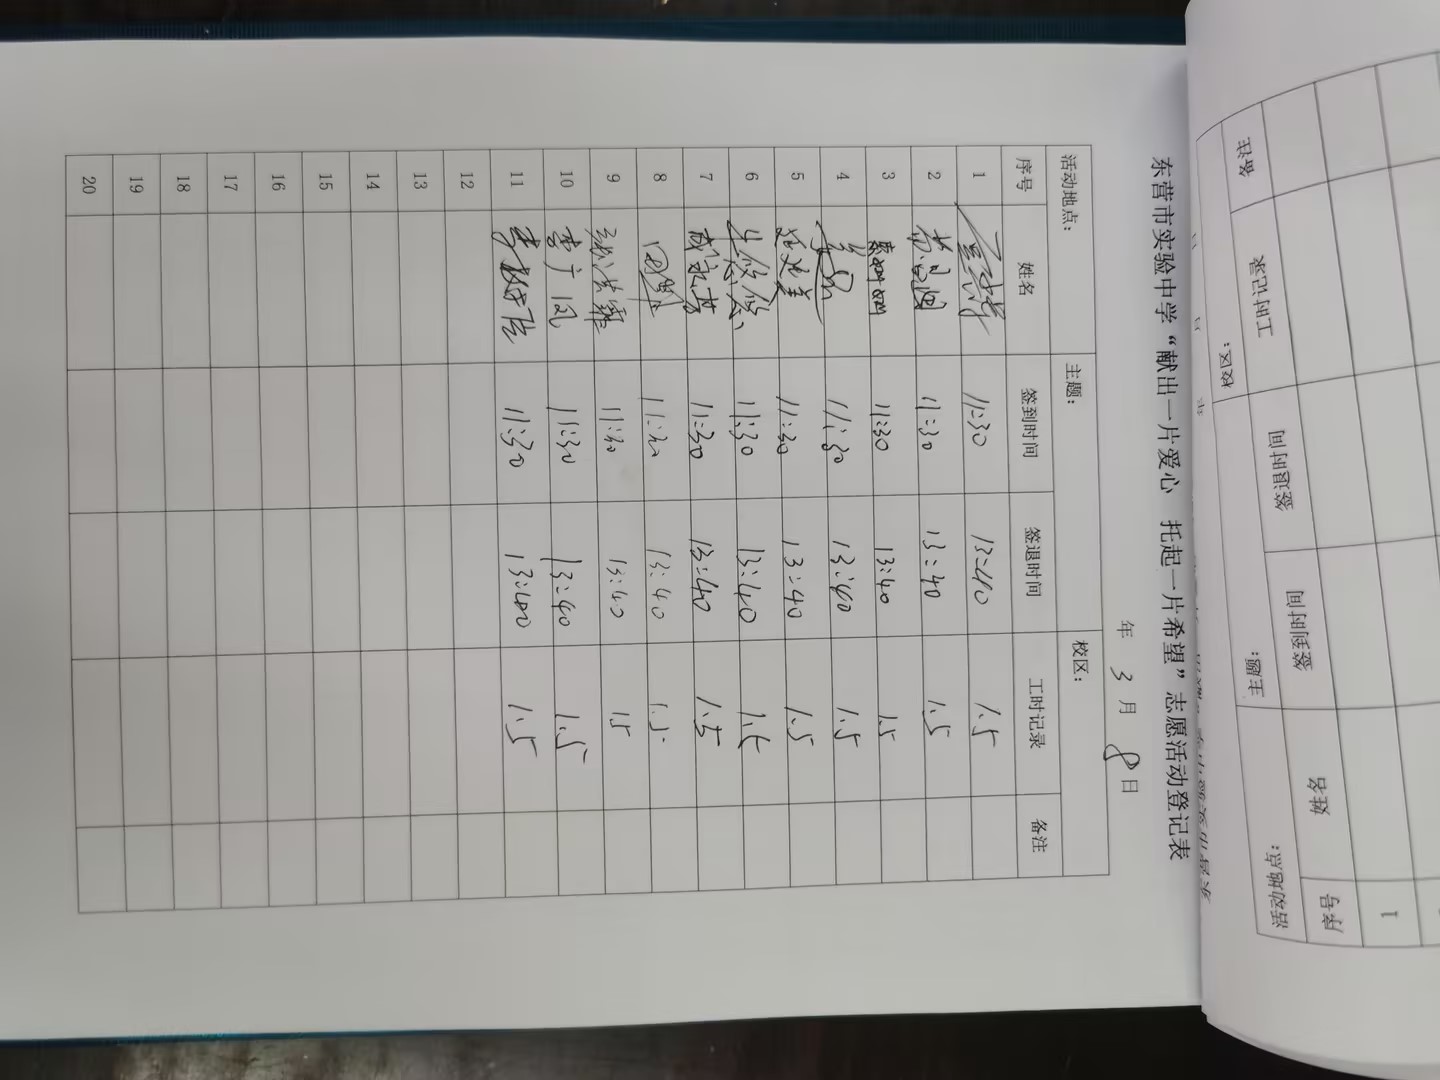 东营市实验中学“献出一片爱心 托起一片希望”志愿活动登记表
年 3 月 8 日
活动地点: 主题: 校区:
序号 姓名 签到时间 签退时间 工时记录 备注
1 11:30 13:40 1.5
2 11:30 13:40 1.5
3 11:30 13:40 1.5
4 11:30 13:40 1.5
5 11:30 13:40 1.5
6 牛悠悠 11:30 13:40 1.5
7 11:30 13:40 1.5
8 11:30 13:40 1.5
9 11:30 13:40 1.5
10 李广凤 11:30 13:40 1.5
11 11:30 13:40 1.5
12
13
14
15
16
17
18
19
20
校区:
备注 工时记录 签退时间 签到时间 姓名 序号
主题:
活动地点:
1